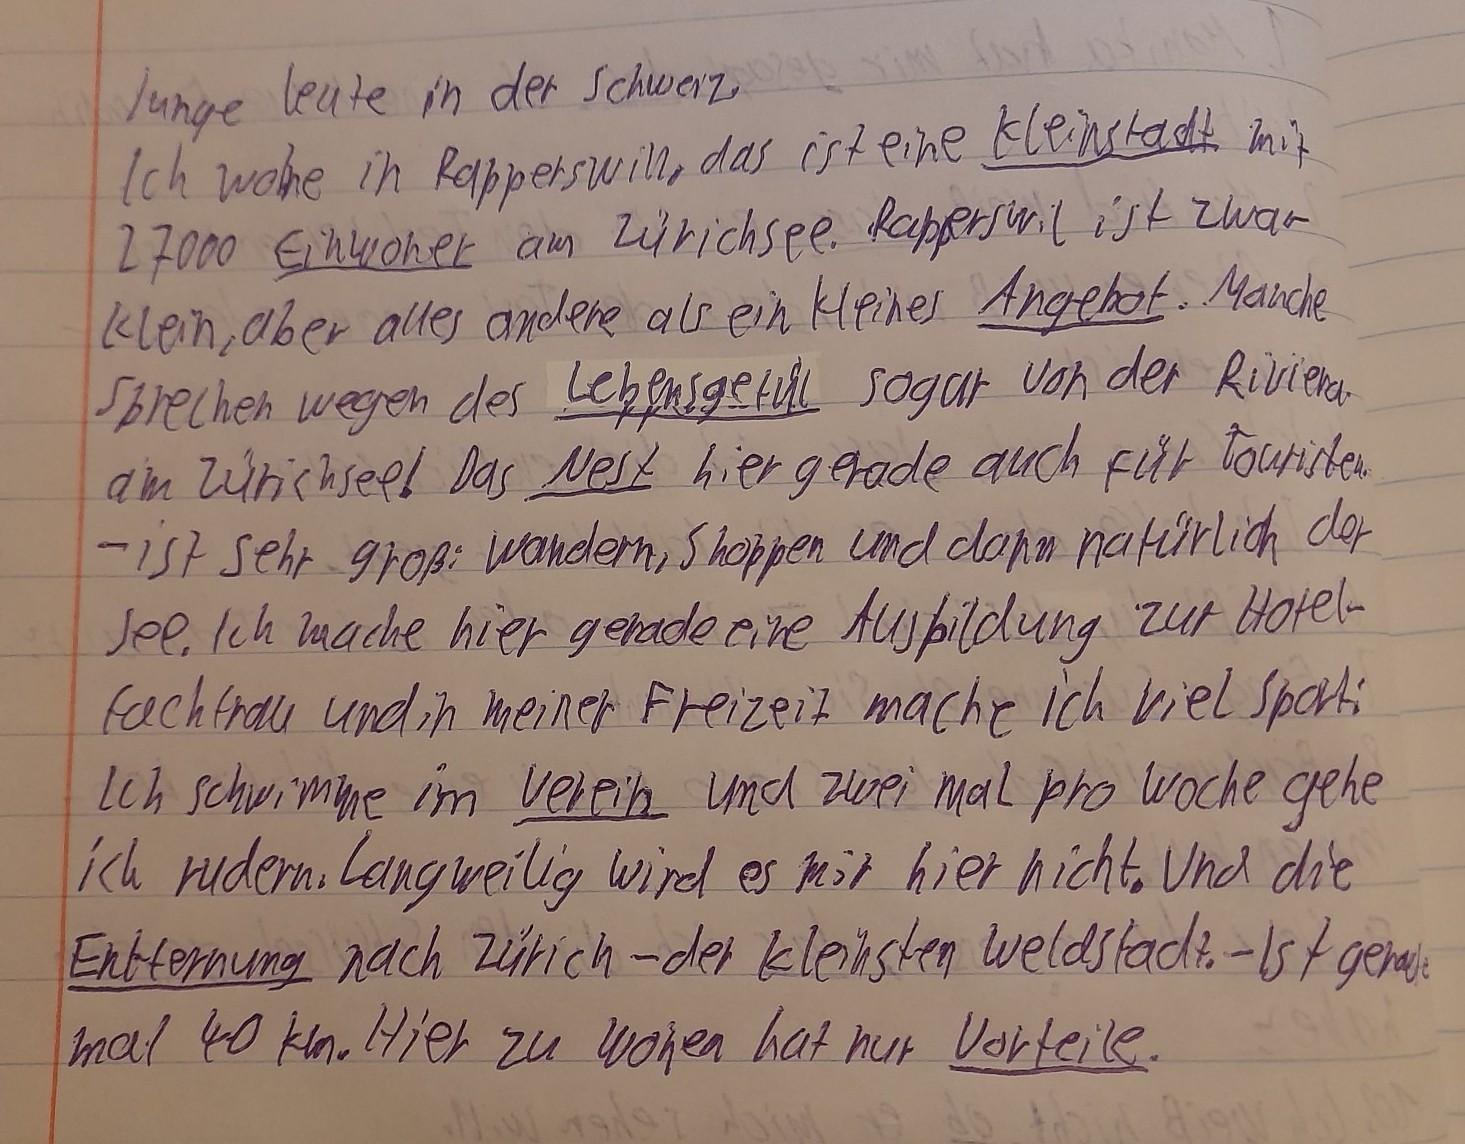 Junge leute in der Schweiz.
Ich wohne in Rapperswill, das ist eine Kleinstadt mit
27000 Einwoner am Zürichsee. Rapperswil ist zwar
klein, aber alles andere als ein kleines Angebot. Manche
sprechen wegen des Lebensgefül sogar von der Riviera
am Zürichsee! Das Nest hier gerade auch für Touristen.
-ist sehr groß: wandern, Shoppen und dann natürlich der
See. Ich mache hier gerade eine Ausbildung zur Hotel-
fachfrau und in meiner Freizeit mache ich viel Sport:
Ich schwimme im Verein und zwei mal pro woche gehe
ich rudern. Langweilig wird es mir hier nicht. Und die
Entfernung nach Zürich - der kleinsten weldstadt. - Ist gerade
mal 40 km. Hier zu wonen hat nur Vorteile.